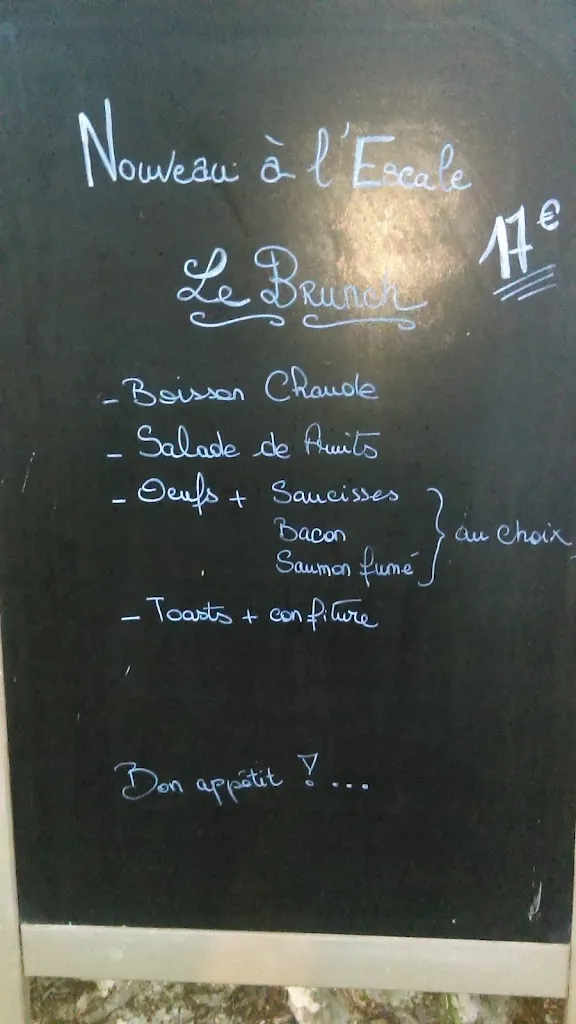 Nouveau à l'Escale
17€
Le Brunch
- Boisson Chaude
- Salade de fruits
- Oeufs + Saucisses
Bacon
Saumon fumé
au choix
- Toasts + confiture
Bon appétit !...